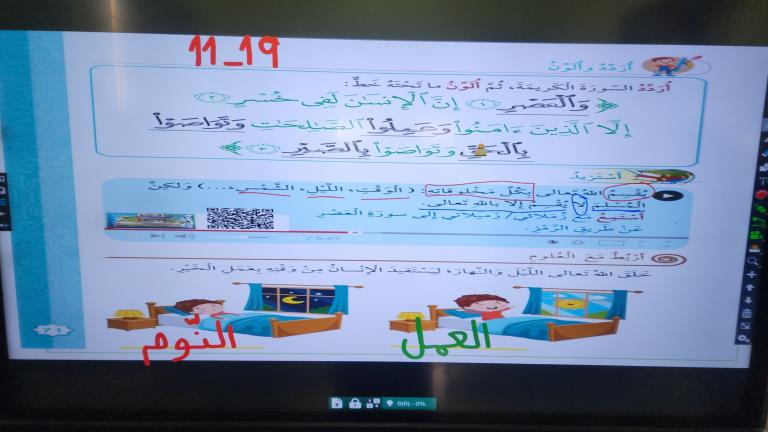 11_19
أُرَدِّدُ وَأُلَوِّنُ
أُرَدِّدُ السّورَةَ الْكَريمَةَ، ثُمَّ أُلَوِّنُ ما تَحْتَهُ خَطٌّ:
﴿ وَٱلْعَصْرِ ﴿١﴾ إِنَّ ٱلْإِنسَٰنَ لَفِى خُسْرٍ ﴿٢﴾
إِلَّا ٱلَّذِينَ ءَامَنُوا۟ وَعَمِلُوا۟ ٱلصَّٰلِحَٰتِ وَتَوَاصَوْا۟
بِٱلْحَقِّ وَتَوَاصَوْا۟ بِٱلصَّبْرِ ﴿٣﴾ ﴾
أَسْتَزيدُ
يُقْسِمُ اللهُ تَعالى بِكُلِّ مَخْلوقاتِهِ: (الْوَقْتِ، اللَّيْلِ، الشَّمْسِ،...) وَلكِنَّ
الْمُسْلِمَ لا يُقْسِمُ إِلّا بِاللهِ تَعالى.
أَسْتَمِعُ مَعَ زُمَلائي/ زَميلاتي إِلى سورَةِ الْعَصْرِ
عَنْ طَريقِ الرَّمْزِ.
أَرْبِطُ مَعَ الْعُلومِ
خَلَقَ اللهُ تَعالى اللَّيْلَ وَالنَّهارَ؛ لِيَسْتَفيدَ الْإِنْسانُ مِنْ وَقْتِهِ بِعَمَلِ الْخَيْرِ.
العمل
النّوم
0(0) - 0%